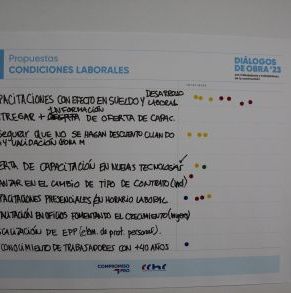 Propuestas
CONDICIONES LABORALES
DIÁLOGOS
DE OBRA'23
DESARROLLO
PACITACIONES CON EFECTO EN SUELDO Y LABORAL
INFORMACIÓN
TREGAR + DE OFERTA DE CAPAC.
segurar QUE NO SE HAGAN DESCUENTO CUANDO
ERTA DE CAPACITACIÓN EN NUEVAS TECNOLOGÍAS
ANZAR EN EL CAMBIO DE TIPO DE CONTRATO (ind)
PACITACIONES PRESENCIALES EN HORARIO LABORAL
EN OFICIOS FOMENTANDO EL CRECIMIENTO (mujeres)
CALIZACIÓN DE EPP (elem. de prot. personal)
CONOCIMIENTO DE TRABAJADORES CON +40 AÑOS
COMPROMISO
PRO
cchc